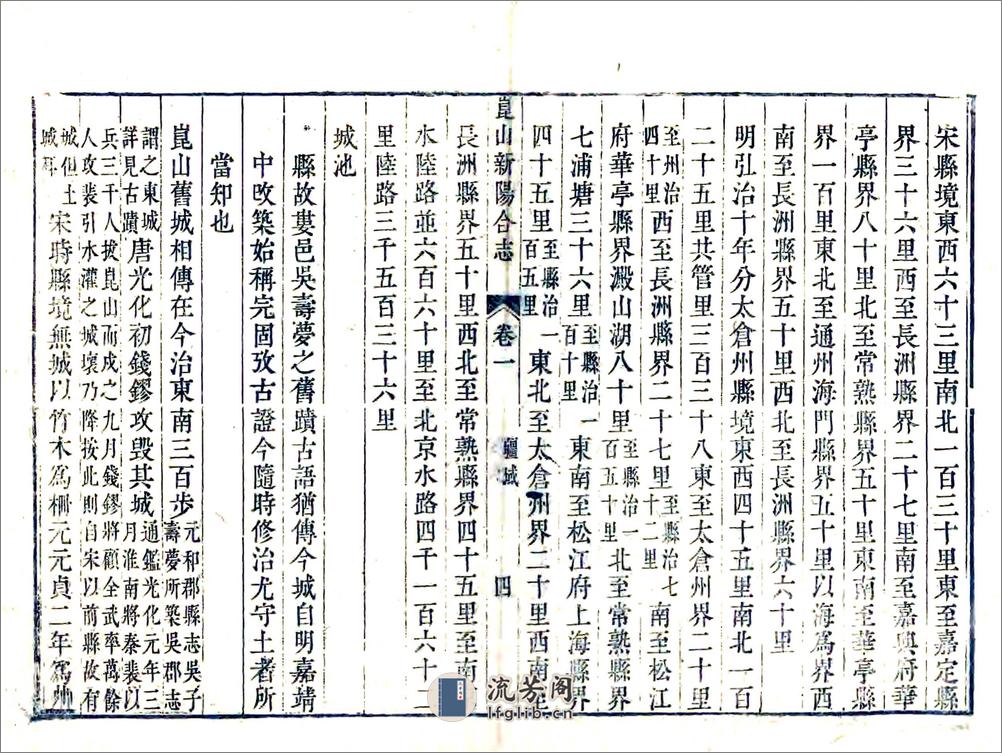 宋縣境東西六十三里南北一百三十里東至嘉定縣
界三十六里西至長洲縣界二十七里南至嘉興府華
亭縣界八十里北至常熟縣界五十里東南至華亭縣
界一百里東北至通州海門縣界五十里以海爲界西
南至長洲縣界五十里西北至長洲縣界六十里
明弘治十年分太倉州縣境東西四十五里南北一百
二十五里共管里三百三十八東至太倉州界二十里
至州治四十里西至長洲縣界二十七里至縣治七十二里南至松江
府華亭縣界澱山湖八十里至縣治一百五十里北至常熟縣界
七浦塘三十六里至縣治一百十里東南至松江府上海縣界
四十五里至縣治一百五里東北至太倉州界二十里西南至
崑山新陽合志 卷一 疆域 四
長洲縣界五十里西北至常熟縣界四十五里至南京
水陸路並六百六十里至北京水路四千一百六十二
里陸路三千五百三十六里
城池
縣故婁邑吳壽夢之舊蹟古語猶傳今城自明嘉靖
中改築始稱完固攷古證今隨時修治尤守土者所
當知也
崑山舊城相傳在今治東南三百步元和郡縣志吳子壽夢所築吳郡志
謂之東城詳見古蹟唐光化初錢鏐攻毀其城通鑑光化元年三月淮南將秦裴以
兵三千人拔崑山而戍之九月錢鏐將顧全武率萬餘
人攻裴引水灌之城壞乃降按此則自宋以前縣故有
城但土城耳宋時縣境無城以竹木爲柵元元貞二年爲州
流芳阁
lfglib.cn